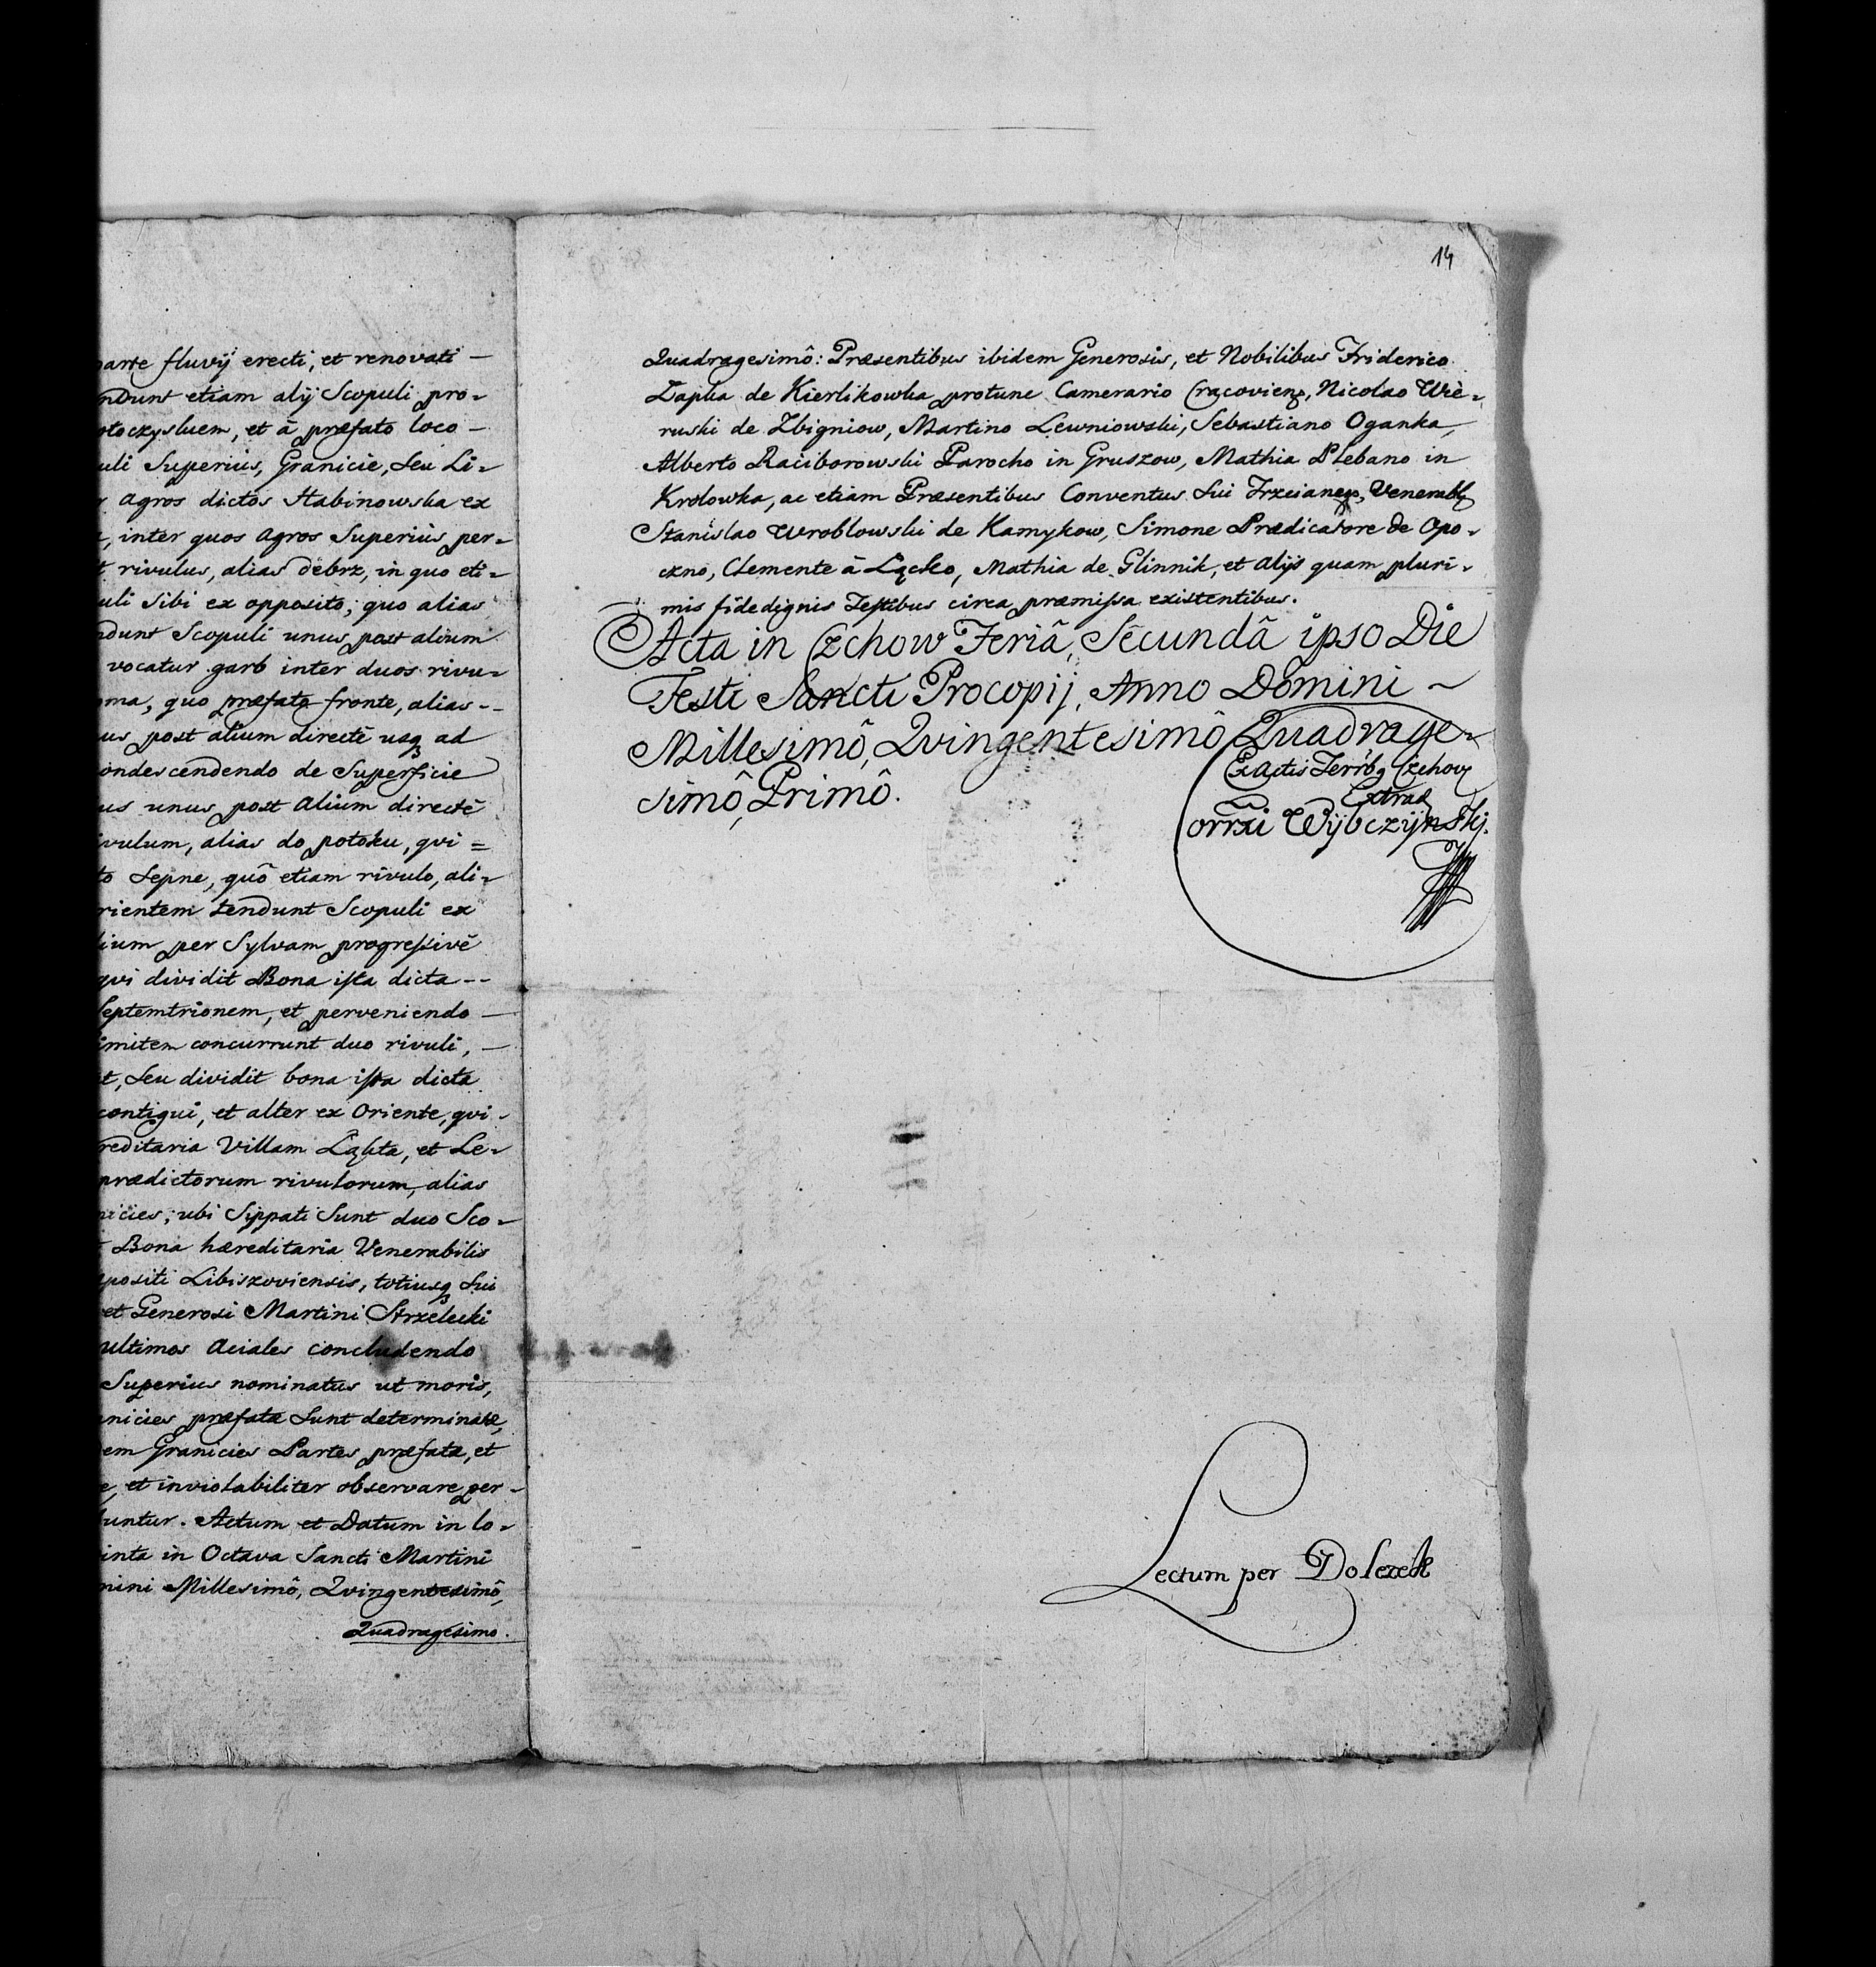 parte fluvij erecti, et renovati –
ndunt etiam alij Scopuli pro-
otoczyskuem, et â præfato loco –
uli Superiùs, Granicie, Seu Li-
agros dictos Stabinowska ex
, inter quos agros Superiùs per-
t rivulus, alias debrz, in quo eti-
uli Sibi ex opposito, quo alias
ndunt Scopuli unus post alium
vocatur garb inter duos rivu-
oma, quo præfata fronte, alias --
us post alium directè usq ad
ondescendendo de Superficie
us unus post alium directè
ivulum, alias do potoku, qvi =
to Lepne, quô etiam rivulo, ali-
rientem tendunt Scopuli ex
lium per Sylvam progressivè
qvi dividit Bona ista dicta --
Septemtrionem, et perveniendo –
imitem concurrunt duo rivuli, –
t, Seu dividit bona ista dicta
contigui, et alter ex Oriente, qvi-
reditaria Villam Łąkta, et Le-
prædictorum rivulorum, alias
nicies, ubi Sippati Sunt duo Sco-
Bona hæreditaria Venerabilis
positi Libiszoviensis, totiusq Sui
et Generosi Martini Strzelecki
ultimos aciales concludendo
Superius nominatus ut moris,
nicies præfatæ Sunt determinatæ,
em Granicies Partes præfatæ, et
e, et inviolabiliter observare per-
buntur. Actum et Datum in lo-
inta in Octava Sancti Martini
mini Millesimô, Qvingentesimô,
Quadragesimo.
14
Quadragesimô: Præsentibus ibidem Generosis, et Nobilibus Friderico
Łapka de Kierlikowka protunc Camerario Cracovienz, Nicolao Wie-
ruski de Zbigniow, Martino Lewniowski, Sebastiano Oganka,
Alberto Raciborowski Parocho in Gruszow, Mathia Plebano in
Krolowka, ac etiam Præsentibus Conventus Sui Trzcianen, Venerabl
Stanislao Wroblowski de Kamykow, Simone Prædicatore de Opo-
czno, Clemente â Łącko, Mathia de Glinnik, et alijs quam pluri-
mis fide dignis Testibus circa præmissa existentibus.
Acta in Czchow Feriâ, Secundâ ipso Die
Festi Sancti Procopij, Anno Domini ~
Millesimô, Qvingentesimô, Quadrage-
simô, Primô.
Ex Actis Terrbq Czchov
Extrad
Wijbczijnskj.
Lectum per Dolezek